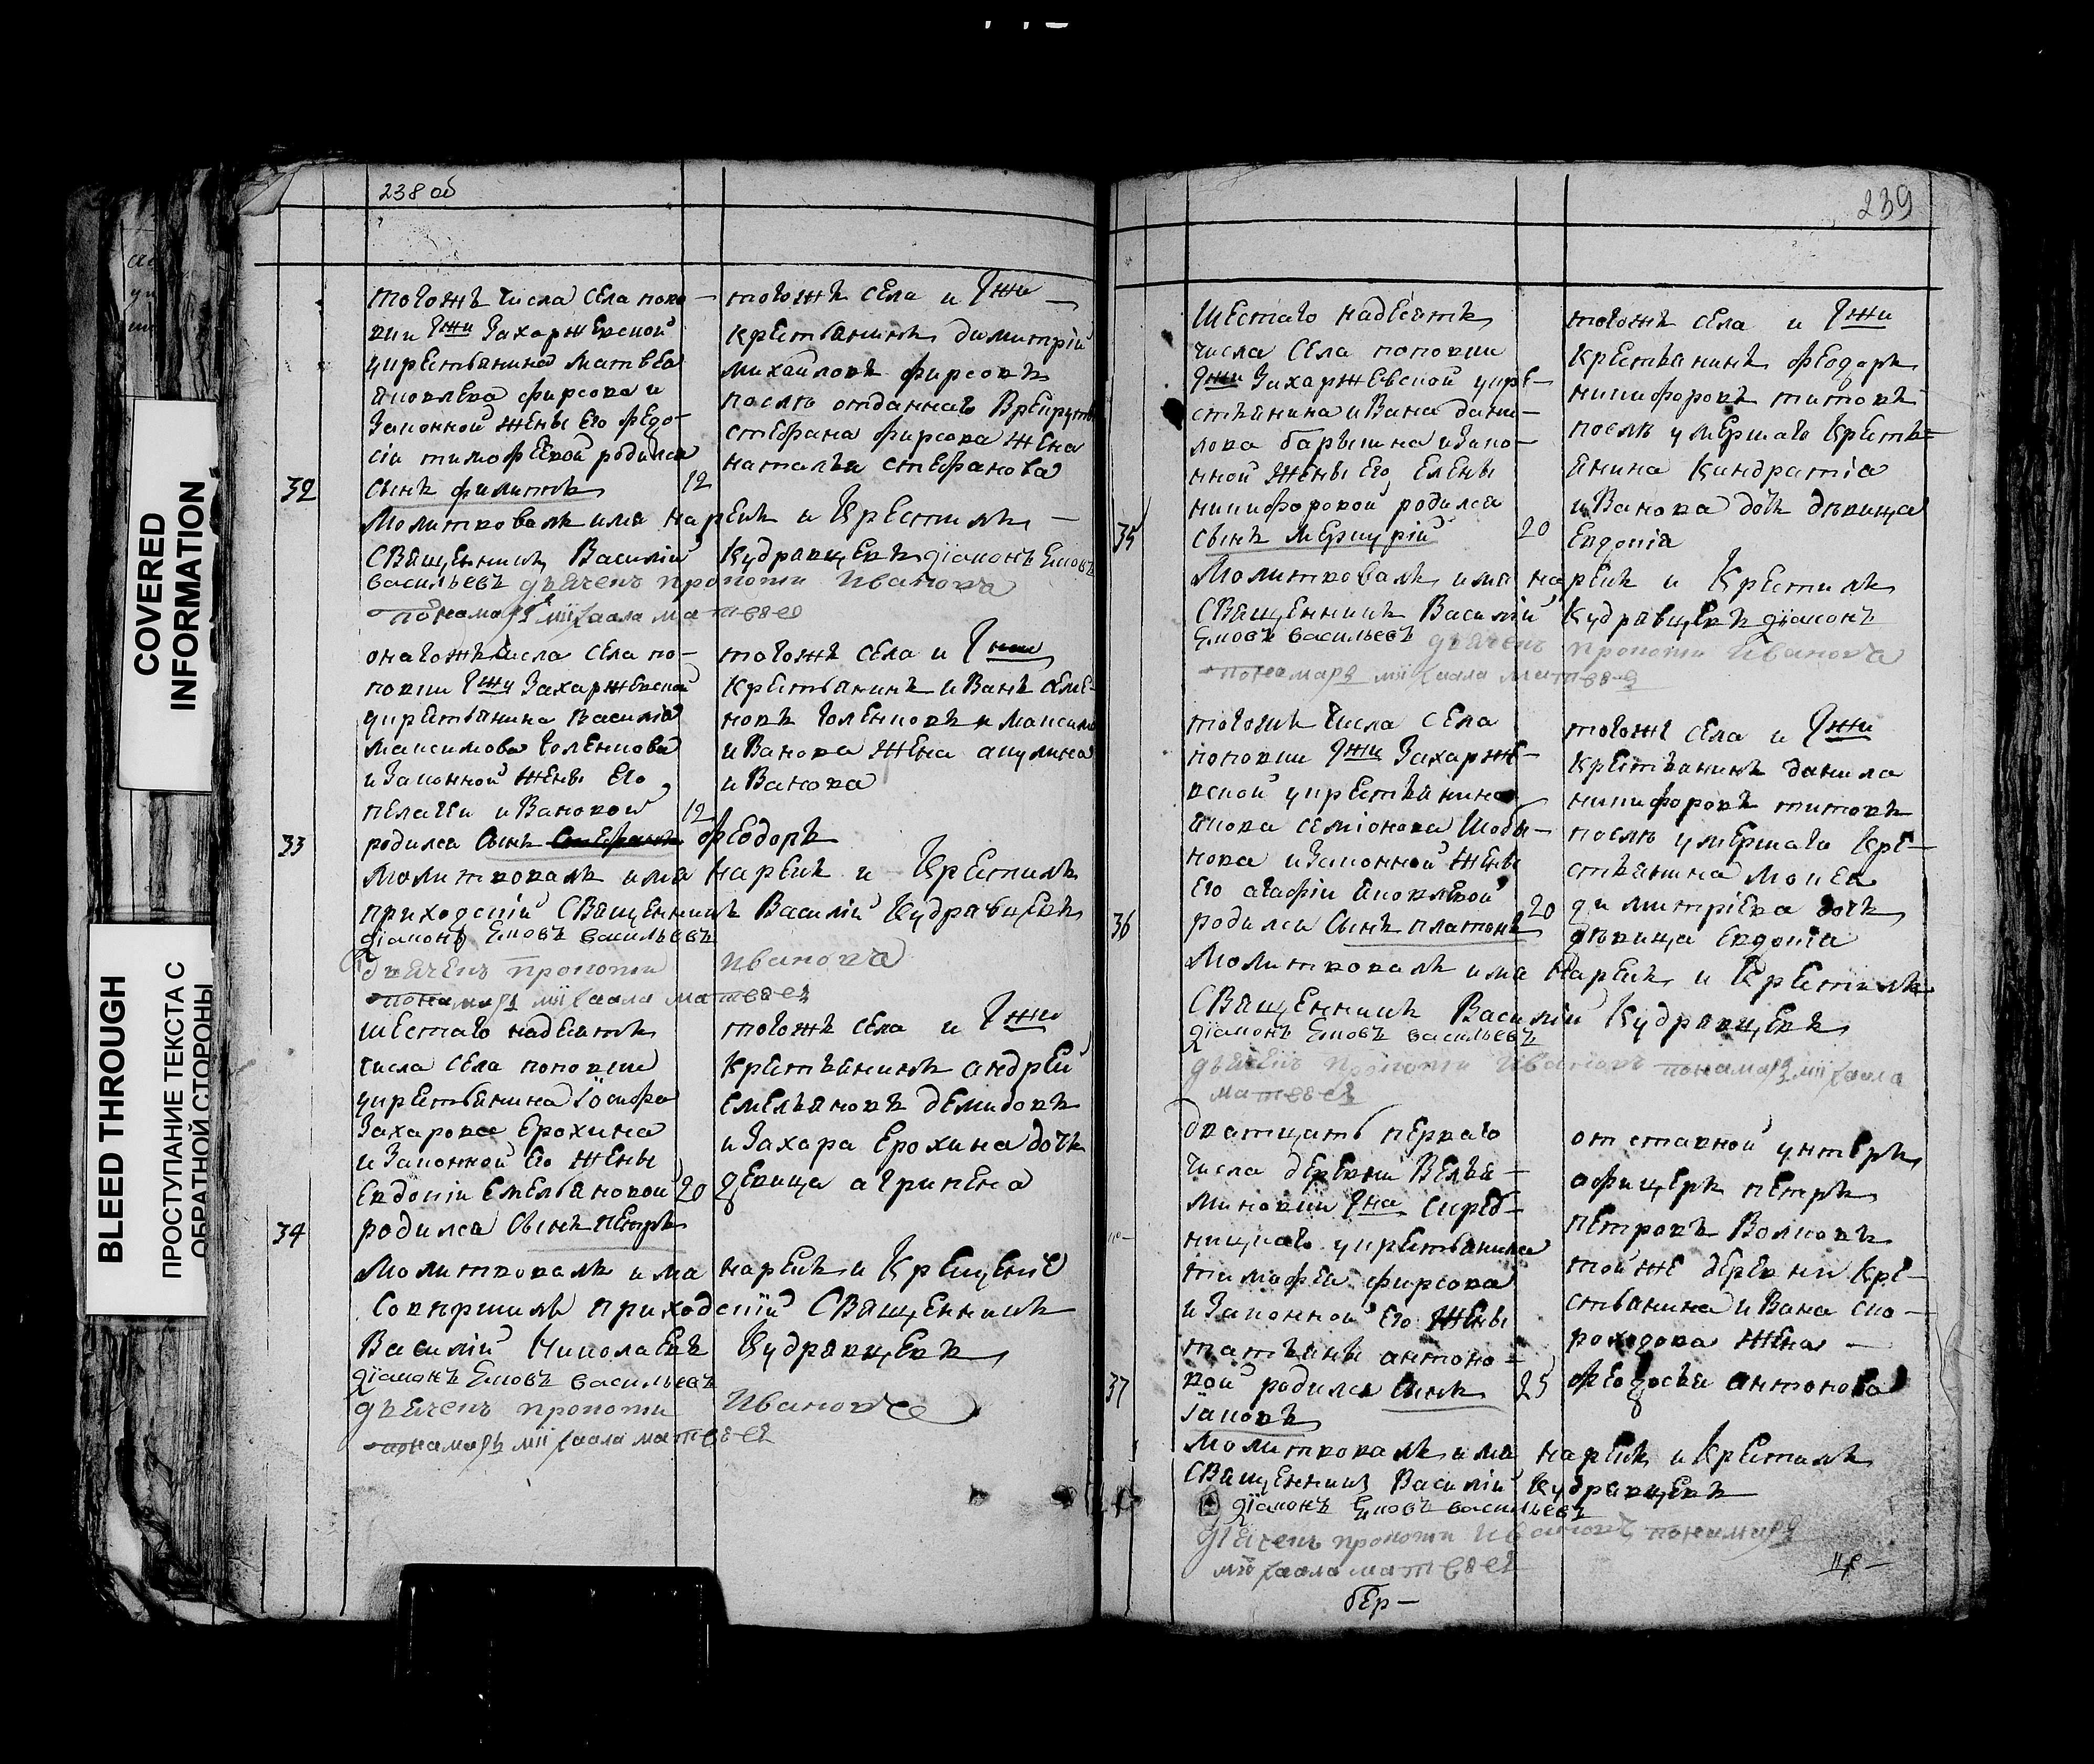 COVERED
INFORMATION
BLEED THROUGH
ПРОСТУПАНИЕ ТЕКСТА С
ОБРАТНОЙ СТОРОНЫ
238 об
тогожъ числа села попо-
вки Гжи Захаржевской
крестьянина Матвея
Яковлева Фирсова и
Законной жены Его Федо-
сіи тимофѣевой родился
32 сынъ филипъ 12
тогожъ села и Гжи
крестьянинъ димитрій
михайловъ фирсовъ
послѣ отданнаго Врекруты
стефана фирсова жена
наталья стефанова
Молитвовалъ имя нарекъ и Крестилъ
Священникъ Василій Кудрявцевъ діаконъ Іаковъ
васильевъ дьячекъ прокопи Ивановъ
понамарь миіхаала матвеев
оногожъ числа села по-
повки Гжи Захаржевской
крестьянина василія
максимова Голенкова
и Законной жены Его
пелагеи ивановой 12
33 родился сынъ Стефанъ феодоръ
тогожъ села и Гжи
Крестьянинъ иванъ семе-
новъ Голенковъ и максима
иванова жена акулина
иванова
Молитвовалъ имя нарекъ и Крестилъ
приходскій Священникъ Василій Кудрявцевъ
діаконъ Іаковъ васильевъ
дьячекъ прокопи Ивановъ
понамарь миіхаала матвеев
шестаго надесять
числа села поповки
крестьянина Іосифа
Захарова Ерохина
и Законной Его жены
Евдокіи Емельяновой 20
34 родился сынъ петръ
тогожъ села и Гжи
Крестьянинъ андрей
Емельяновъ демидовъ
и Захара Ерохина дочь
девица агрипена
Молитвовалъ имя нарекъ и Крещение
Совершилъ приходскій Священникъ
Василій Николаевъ Кудрявцевъ
діаконъ Іаковъ васильевъ
дьячекъ прокопи Ивановъ
понамарь миіхаала матвеев
239
Шестаго надесять
числа села поповки
Гжи Захаржевской кре-
стьянина ивана дани-
лова барышна изако-
нной жены Его Елены
никифоровой родился
35 сынъ меркурій 20
тогожъ села и Гжи
Крестьянинъ феодоръ
никифоровъ титовъ
послѣ умершаго Кресть-
янина Киндратія
иванова дочь дѣвица
Евдокія
Молитвовалъ имя нарекъ и Крестилъ
Священникъ Василій Кудрявцевъ діаконъ
Іаковъ васильевъ дьячекъ прокопи Ивановъ
понамарь миіхаала матвеев
тогожъ числа села
поповки Гжи Захарже-
вской крестьянина
якова семіонова
и Законной жены
Его агафіи яковлевой
36 родился сынъ платонъ 20
тогожъ села и Гжи
Крестьянинъ данила
никифоровъ титовъ
послѣ умершаго Кре-
стьянина Мокея
димитріева дочь
дѣвица Евдокіа
Молитвовалъ имя нарекъ и Крестилъ
Священникъ Василій Кудрявцевъ
діаконъ Іаковъ васильевъ
дьячекъ прокопи Ивановъ понамарь миіхаала
матвеев
дватцать перваго
числа деревни Велья-
миновки Гна
крестьянина
тимофея фирсова
и Законной Его жены
татьяны антоно-
37 вой родился сынъ 25
Іаковъ
отставной унтеръ
афицеръ петръ
петровъ Волковъ
той же деревни Кре-
стьянина ивана ско-
роходова жена
феодосья антонова
Молитвовалъ имя нарекъ и Крестилъ
Священникъ Василій Кудрявцевъ
діаконъ Іаковъ васильевъ
дьячекъ прокопи Ивановъ понамарь
миіхаала матвеев
бер-